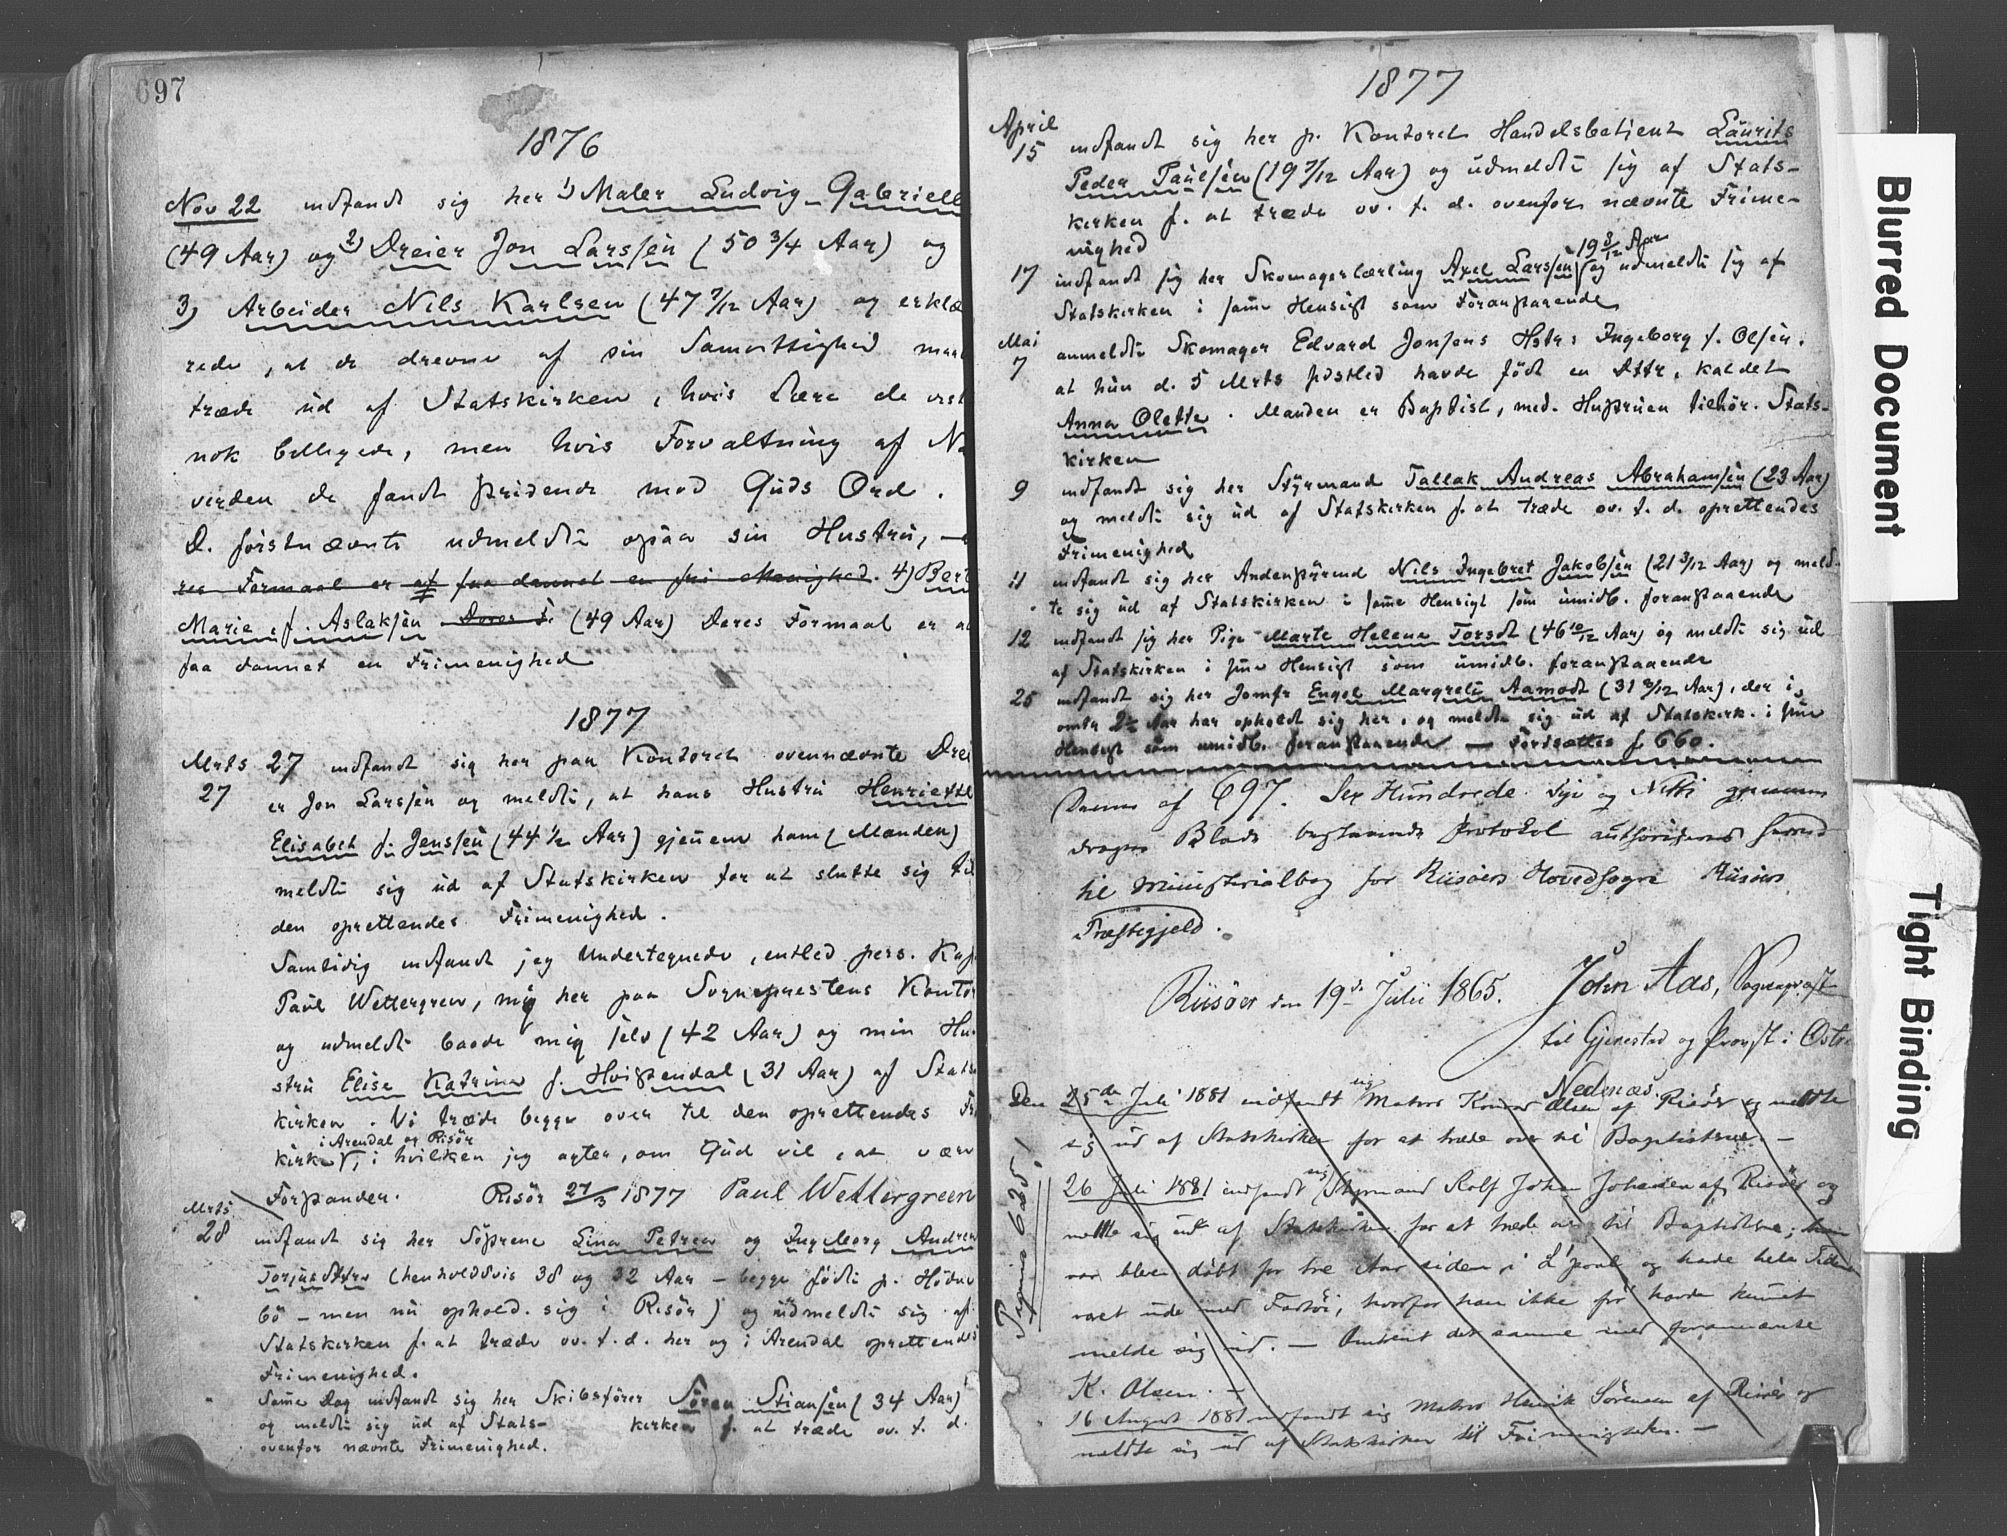 697
1876
Nov 22 indfandt sig her 1) Maler Ludvig Gabriell
(49 Aar) og 2) Dreier Jon Larssen (50 3/4 Aar) og
3) Arbeider Nils Karlsen (47 7/12 Aar) og erklæ
rede, at de drevne af sin Samvittighed maa
træde ud af Statskirken, hvis Lære de vist
nok billigede, men hvis Forvaltning af Na
verden de fandt stridende mod Guds Ord.
D. förstnævnte udmeldte ogsaa sin Hustru,
res Formaal er at faa dannet en fri Menighed. 4) Bert
Marie f. Aslaksen (49 Aar) Deres Formaal er at
faa dannet en Frimenighed
1877
Mrts 27 indfandt sig her paa Kontoret ovennævnte Drei
27 er Jon Larssen og meldte, at hans Hustru Henriette
Elisabet f. Jenssen (44 1/2 Aar) gjennem ham (Manden)
meldte sig ud af Statskirken for at slutte sig til
den oprettendes Frimenighed.
Samtidig indfandt jeg Undertegnede, entled. pers. Kap.
Paul Wettergren, mig her paa Sognepræstens Kontor
og udmeldte baade mig selv (42 Aar) og min Hu-
stru Elise Katrine f. Hvistendal (31 Aar) af Stats
kirken. Vi træde begge over til den oprettendes Fri
i Arendal og Risör
kirke, i hvilken jeg agter, om Gud vil, at være
Forstander. Risör 27/3 1877 Paul Wettergreen
Mrts
28 indfandt sig her Söstrene Lina Petrea og Ingeborg Andrea
Torjusdttre (henholdsvis 38 og 32 Aar – begge födte p. Hödne
bö – men nu ophold. sig i Risör) og udmeldte sig af
Statskirken f. at træde ov. t. d. her og i Arendal oprettendes
Frimenighed.
Samme Dag indfandt sig her Skibsförer Sören Stiansen (34 Aar)
og meldte sig ud af Stats- kirken f. at træde ov. t. d.
ovenfor nævnte Frimenighed.
1877
April
15 indfandt sig her p. Kontoret Handelsbetjent Laurits
Peder Paulsen (19 7/12 Aar) og udmeldte sig af Stats-
kirken f. at træde ov. t. d. ovenfor nævnte Frime-
nighed
19 8/12 Aar
17 indfandt sig her Skomagerlærling Axel Larssen og udmeldte sig af
Statskirken i samme Hensigt som Foranstaaende
Mai
7 anmeldte Skomager Edvard Jonsens Hstr: Ingeborg f. Olsen,
at hun d. 5 Mrts sidstled havde född en Dttr, kaldet
Anna Olette. Manden er Baptist, med. Hustruen tilhör. Stats-
kirken
9 indfandt sig her Styrmand Tallak Andreas Abrahamsen (23 Aar)
og meldte sig ud af Statskirken f. at træde ov. t. d. oprettendes
Frimenighed
11 indfandt sig her Andenstyrmd Nils Ingebret Jakobsen (21 3/12 Aar) og meld-
te sig ud af Statskirken i samme Hensigt som umidb. foranstaaende
12 indfandt sig her Pige Marte Helene Torsdt (46 10/12 Aar) og meldte sig ud
af Statskirken i samme Hensigt som umidb. foranstaaende
25 indfandt sig her Jomfr Engel Margrete Aamodt (31 8/12 Aar), der i
omtr 2½ Aar har opholdt sig her, og meldte sig ud af Statskirk. i samme
Hensigt som umidb. foranstaaende — Fortsættes f. 660.
Denne af 697. Sex Hundrede Syv og Nitti gjennem
dragne Blade bestaaende Protokol authoriseres herved
til Ministerialbog for Riisøers Hovedsogn Riisøers
Præstegjeld.
Riisøer den 19de Juli 1865. John Aas, Sogneprest
til Gjerestad og Provst i Østre
Nedenæs.
Den 25de Juli 1881 indfandt sig Matros Konrad Olsen af Risör og meldte
sig ud af Statskirken for at træde over til Baptisterne. —
Pagina 625!
26 Juli 1881 indfandt sig Styrmand Rolf Johan Johansen af Risör og
meldte sig ud af Statskirken for at træde over til Baptisterne; han
var bleven döbt for tre Aar siden i L'pool og havde hele Tiden
været ude med Fartöi, hvorfor han ikke för havde kunnet
melde sig ud. — Omtrent det samme med forannævnte
K. Olsen. —
16 August 1881 indfandt sig Matros Henrik Sörensen af Risör og
meldte sig ud af Statskirken til Frimenigheden. —
Blurred Document
Tight Binding